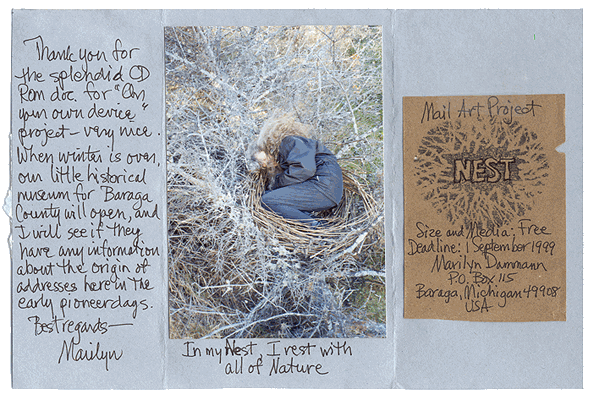 Thank you for
the splendid CD
Rom doc. for "On
your own device"
project - very nice.
When winter is over,
our little historical
museum for Baraga
County will open, and
I will see if they
have any information
about the origin of
addresses here in the
early pioneer days.
Best regards—
Marilyn
In my Nest, I rest with
all of Nature
Mail Art Project
NEST
Size and Media: Free
Deadline: 1 September 1999
Marilyn Dammann
P.O. Box 115
Baraga, Michigan 49908
USA